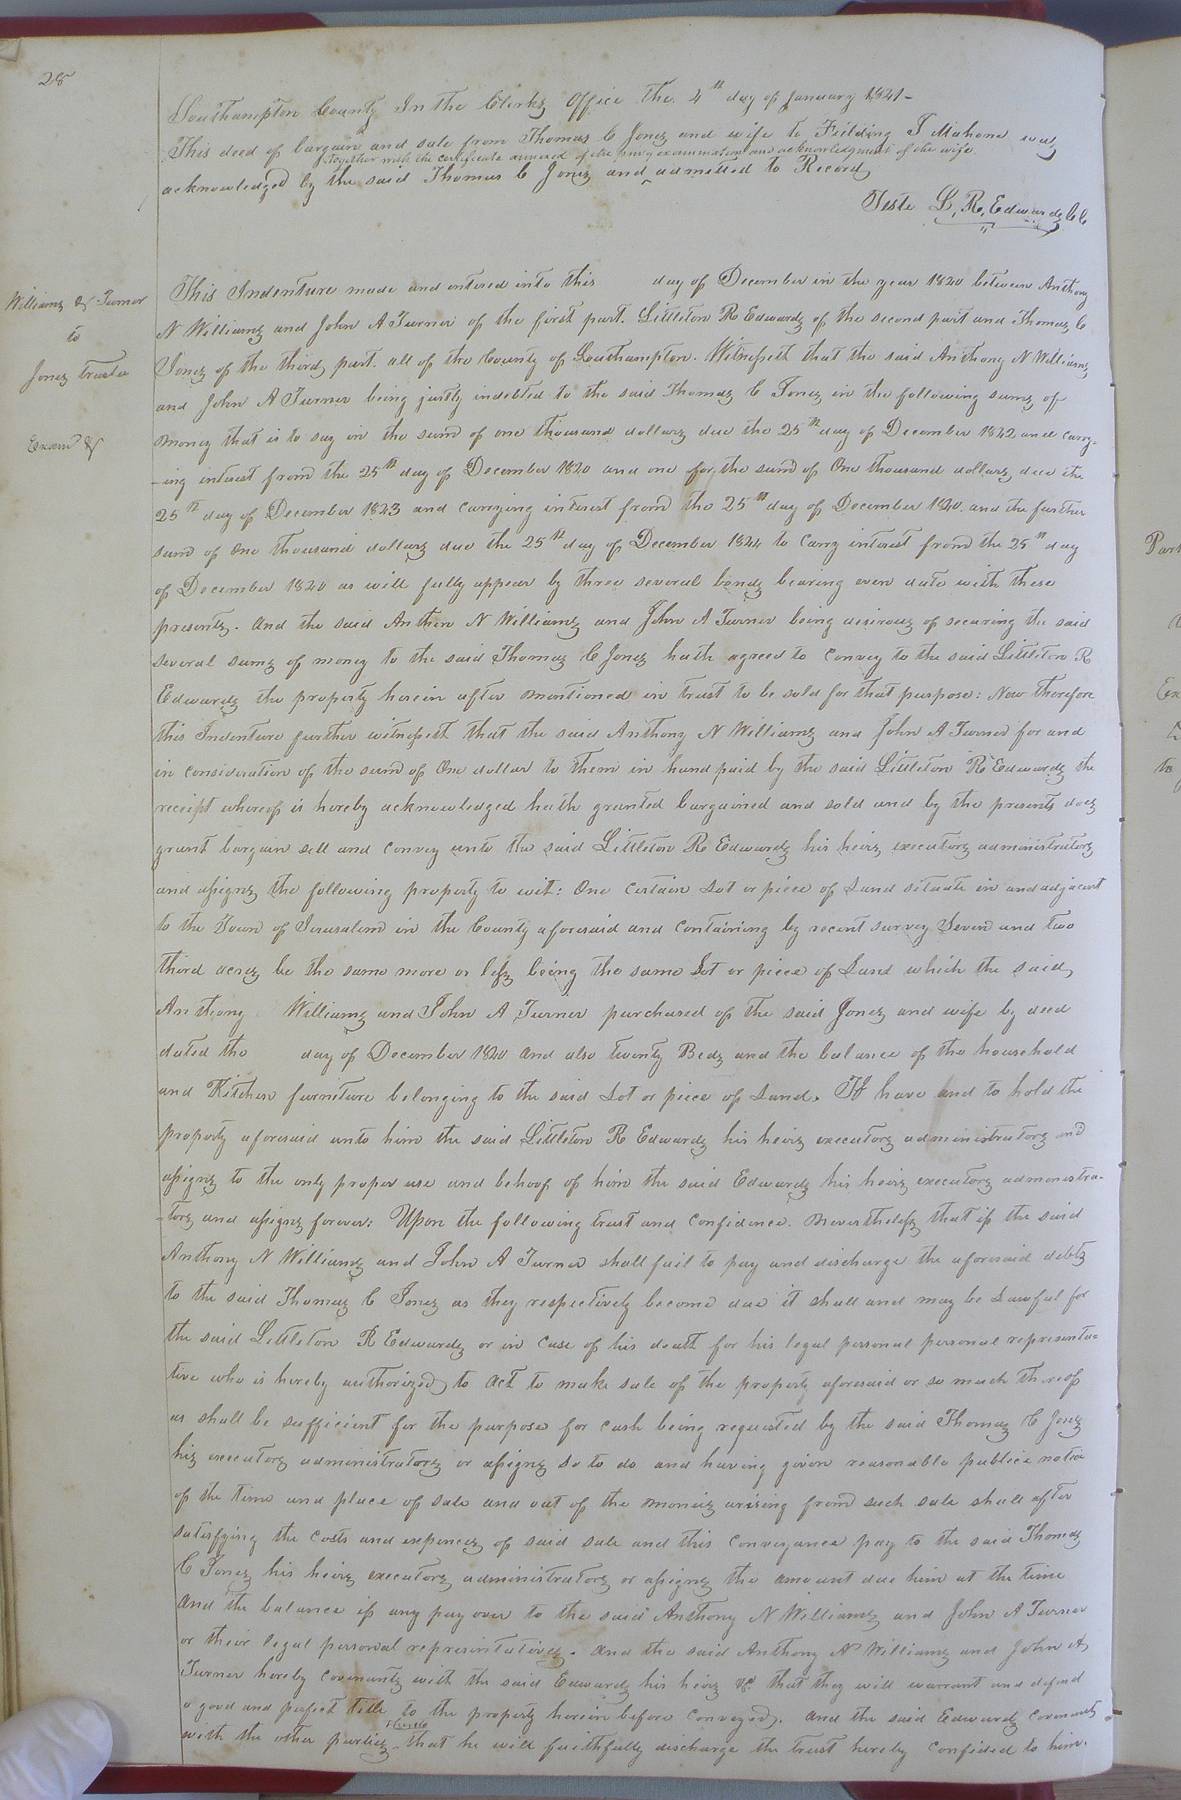 28
Southampton County In the Clerks Office the 4th day of January 1841-
This deed of bargain and sale from Thomas C Jones and wife to Fielding J Mahone was
together with the certificate annexed of the privy examination and acknowledgment of the wife
acknowledged by the said Thomas C Jones and admitted to Record
Teste L, R, Edwards CC
Williams & Turner
to
Jones trustee
Examd &
This Indenture made and entered into this day of December in the year 1840 between Anthony
N Williams and John A Turner of the first part. Littleton R Edwards of the second part and Thomas C
Jones of the third part. all of the County of Southampton. Witnesseth that the said Anthony N Williams
and John A Turner being justly indebted to the said Thomas C Jones in the following sums of
money that is to say in the sum of one thousand dollars due the 25th day of December 1842 and carry-
-ing interest from the 25th day of December 1840 and one for the sum of One thousand dollars due the
25th day of December 1843 and carrying interest from the 25th day of December 1840. and the further
sum of One thousand dollars due the 25th day of December 1844 to carry interest from the 25th day
of December 1840 as will fully appear by three several bonds bearing even date with these
presents. And the said Anthon N Williams and John A Turner being desirous of securing the said
several sums of money to the said Thomas C Jones hath agreed to convey to the said Littleton R
Edwards the property herein after mentioned in trust to be sold for that purpose: Now therefore
this Indenture further witnesseth that the said Anthony N Williams and John A Turner for and
in consideration of the sum of One dollar to them in hand paid by the said Littleton R Edwards the
receipt whereof is hereby acknowledged hath granted bargained and sold and by the presents does
grant bargain sell and convey unto the said Littleton R Edwards his heirs executors administrators
and assigns the following property to wit: One certain Lot or piece of Land situate in and adjacent
to the Town of Jerusalem in the County aforesaid and containing by recent survey Seven and two
third acres be the same more or less being the same Lot or piece of Land which the said
Anthony Williams and John A Turner purchased of the said Jones and wife by deed
dated the day of December 1840 and also twenty Beds and the balance of the household
and Kitchen furniture belonging to the said Lot or piece of Land. To have and to hold the
property aforesaid unto him the said Littleton R Edwards his heirs executors administrators and
assigns to the only proper use and behoof of him the said Edwards his heirs executors administra-
-tors and assigns forever: Upon the following trust and confidence. Nevertheless that if the said
Anthony N Williams and John A Turner shall fail to pay and discharge the aforesaid debts
to the said Thomas C Jones as they respectively become due it shall and may be Lawful for
the said Littleton R Edwards or in case of his death for his legal personal personal representa-
tive who is hereby authorized to act to make sale of the property aforesaid or so much thereof
as shall be sufficient for the purpose for cash being requested by the said Thomas C Jones
his executors administrators or assigns so to do and having given reasonable publice notice
of the time and place of sale and out of the monies arising from such sale shall after
satisfying the costs and expences of said sale and this conveyance pay to the said Thomas
C Jones his heirs executors administrators or assigns the amount due him at the time
and the balance if any pay over to the said Anthony N Williams and John A Turner
or their legal personal representatives. And the said Anthony N Williams and John A
Turner hereby covenants with the said Edwards his heirs &c that they will warrant and defend
a good and perfect title to the property herein before conveyed. And the said Edwards covenants
with the other parties hereto that he will faithfully discharge the trust hereby confided to him.
Part
Ex
to